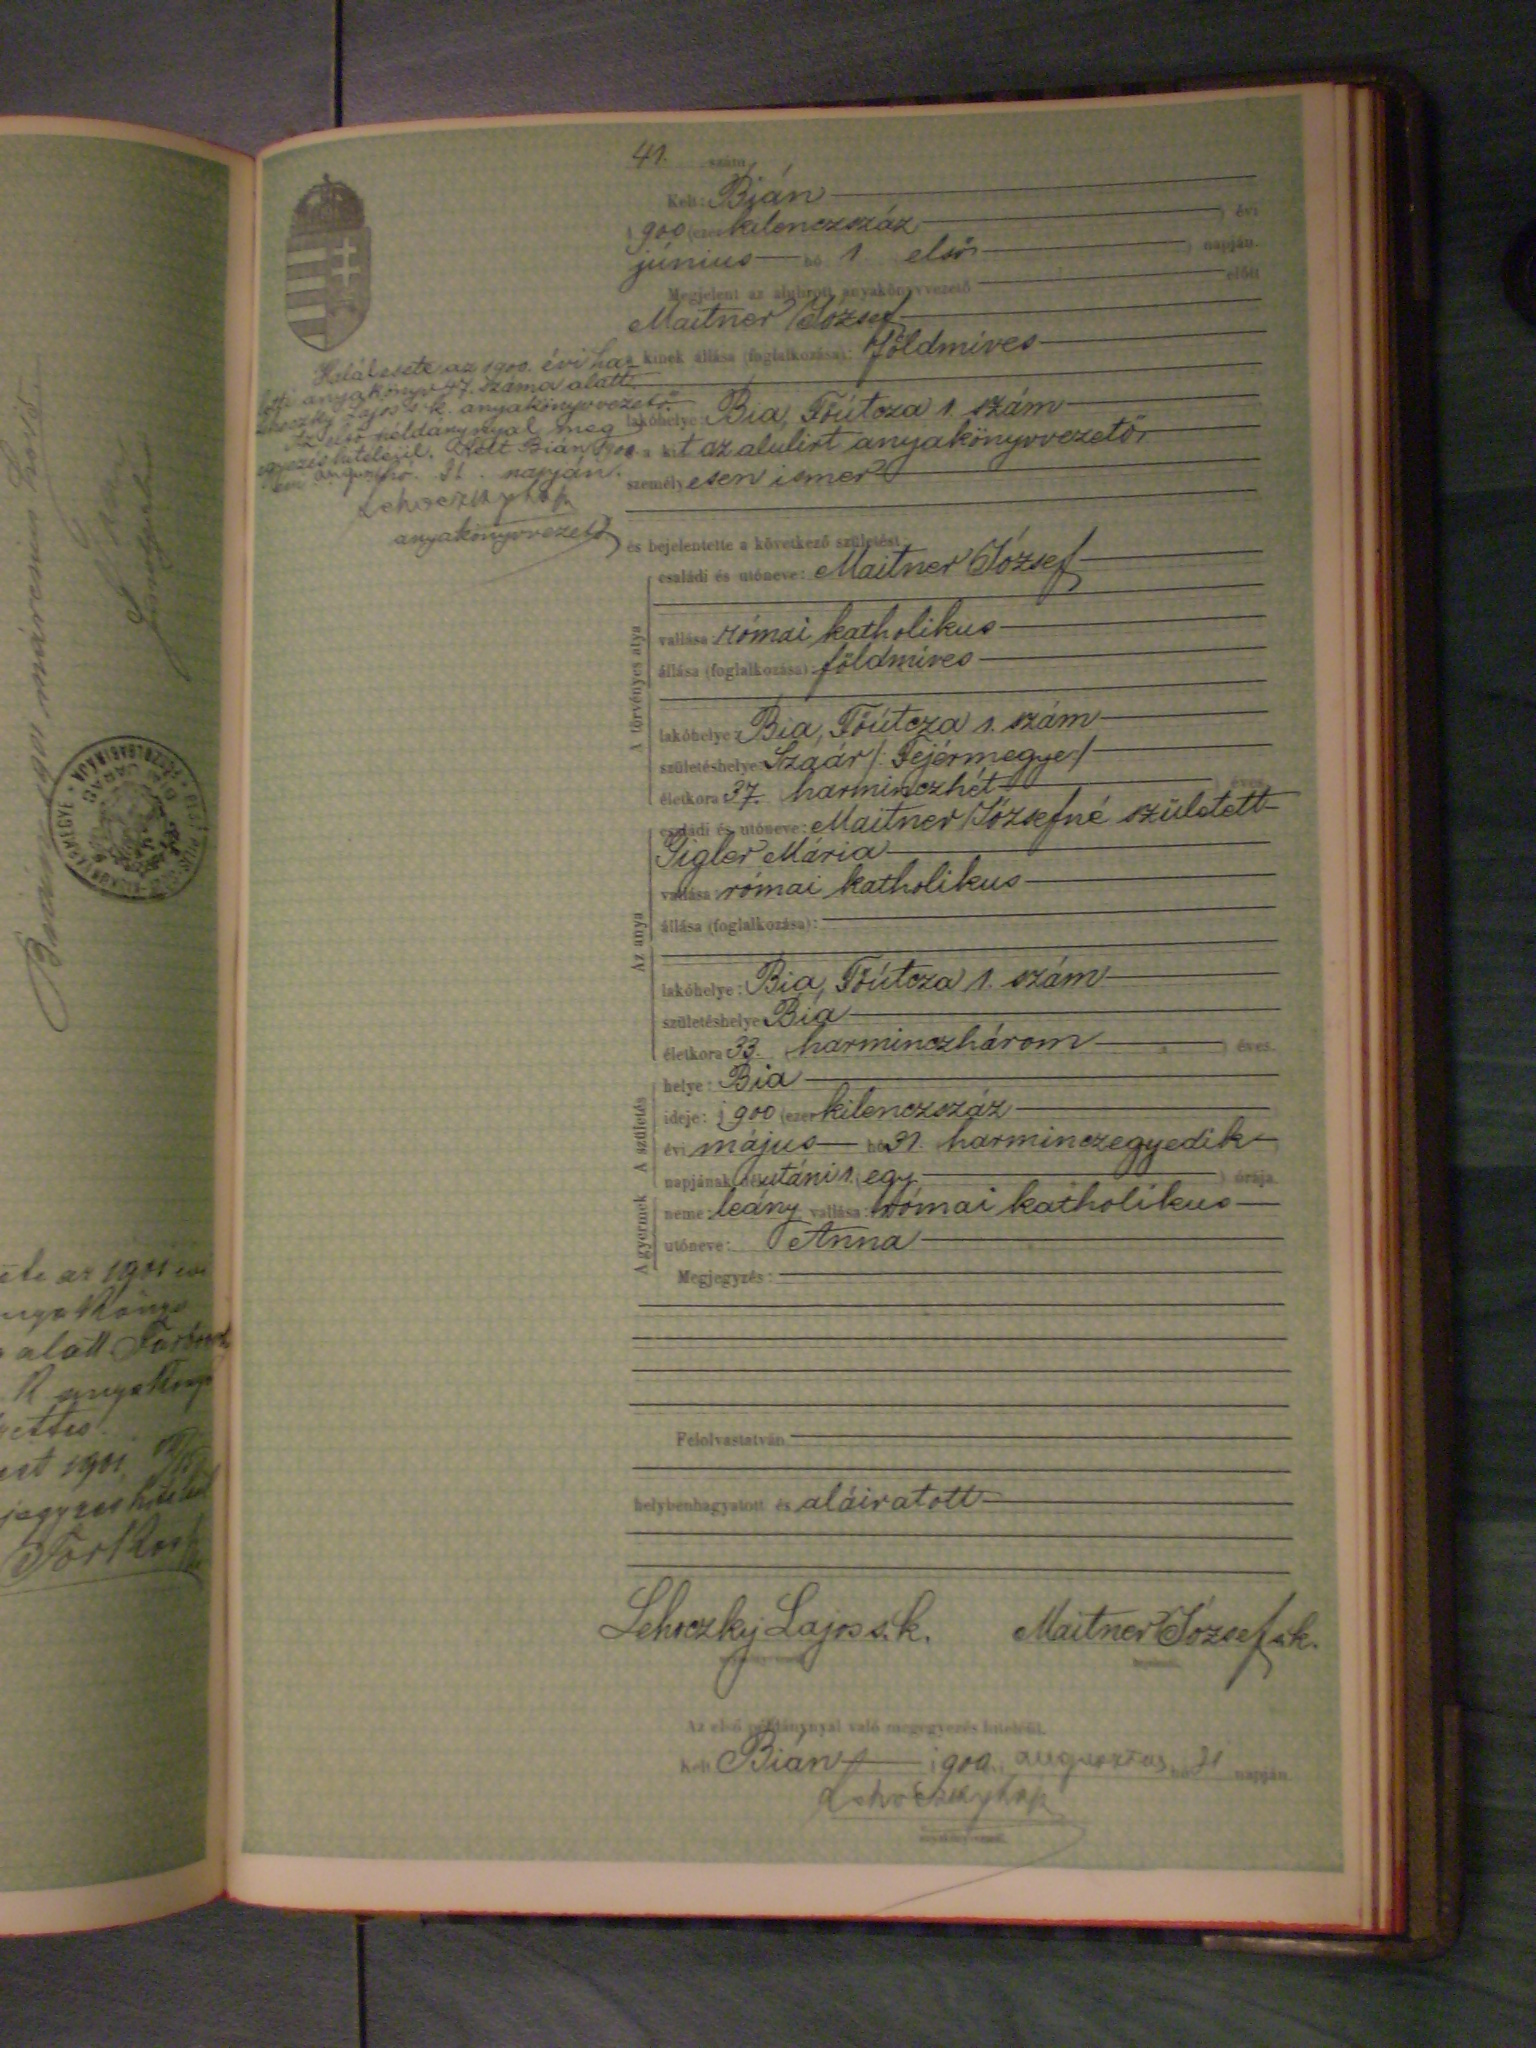 41. szám
Kelt: Bián
1900 (ezer kilenczszáz) évi
június hó 1 első) napján.
Megjelent az alulirott anyakönyvvezető előtt
Maitner József
a kinek állása (foglalkozása): földmíves
lakóhelye: Bia, Főútcza 1. szám
a kit az alulirt anyakönyvvezető
személyesen ismer
és bejelentette a következő születést
A törvényes atya
családi és utóneve: Maitner József
vallása: római katholikus
állása (foglalkozása): földmíves
lakóhelye: Bia, Főútcza 1. szám
születéshelye: Szaár /: Fejérmegye :/
életkora 37. harminczhét) éves.
Az anya
családi és utóneve: Maitner Józsefné született
Gigler Mária
vallása: római katholikus
állása (foglalkozása):
lakóhelye: Bia, Főútcza 1. szám
születéshelye: Bia
életkora 33. (harminczhárom) éves.
A születés
helye: Bia
ideje: 1900 (ezer kilenczszáz
évi május hó 31. harminczegyedik
napjának délutáni 1. (egy) órája.
A gyermek
neme: leány vallása: római katholikus
utóneve: Anna
Megjegyzés:
Felolvastatván
helybenhagyatott és aláiratott
Lehoczky Lajos s.k. Maitner József s.k.
Az első példánynyal való megegyezés hiteléül.
Kelt Bián 1900. augusztus hó 31 napján
Lehoczky Lajos
anyakönyvvezető
Halálesete az 1900. évi ha-
lotti anyakönyv 47. száma alatt.
Lehoczky Lajos s.k. anyakönyvvezető.
Az első példánynyal meg
egyezés hiteléül. Kelt Bián 1900
évi augusztus hó. 31. napján.
Lehoczky Lajos
anyakönyvvezető
1901 évi
alatt
1901